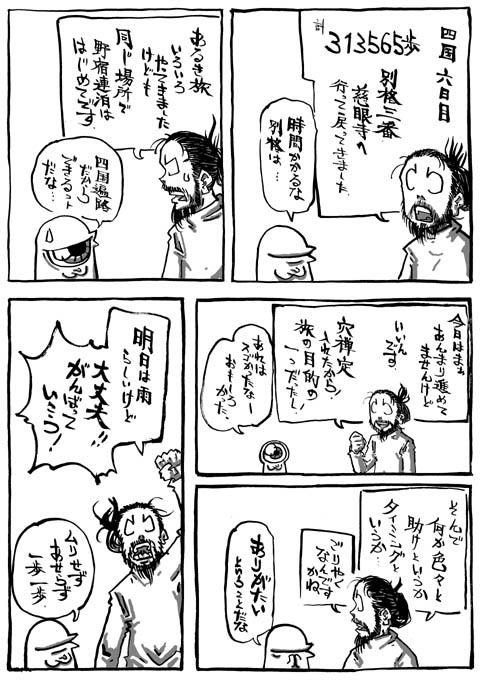 四国 六日目
計
313565歩
別格三番
慈眼寺へ
行って戻ってきました
時間かかるな
別格は…
あるき旅
いろいろ
やってきました
けども
同じ場所で
野宿連泊は
はじめてです。
四国遍路
だから
できるっ
だな…
今日はまぁ
あんまり進めて
ませんけど
いいん
です。
穴禅定
されたから！
旅の目的の
一つだたし！
あれは
スゴかたなー
おもしろ
かた。
そんで
何か色々と
助けというか
タイミングと
いうか…
ごりやく
なんです
かね
ありがたい
ということだな
明日は雨
らしいけど
大丈夫!!
がんばって
いこう！
ムリせず
あせらず
一歩一歩。